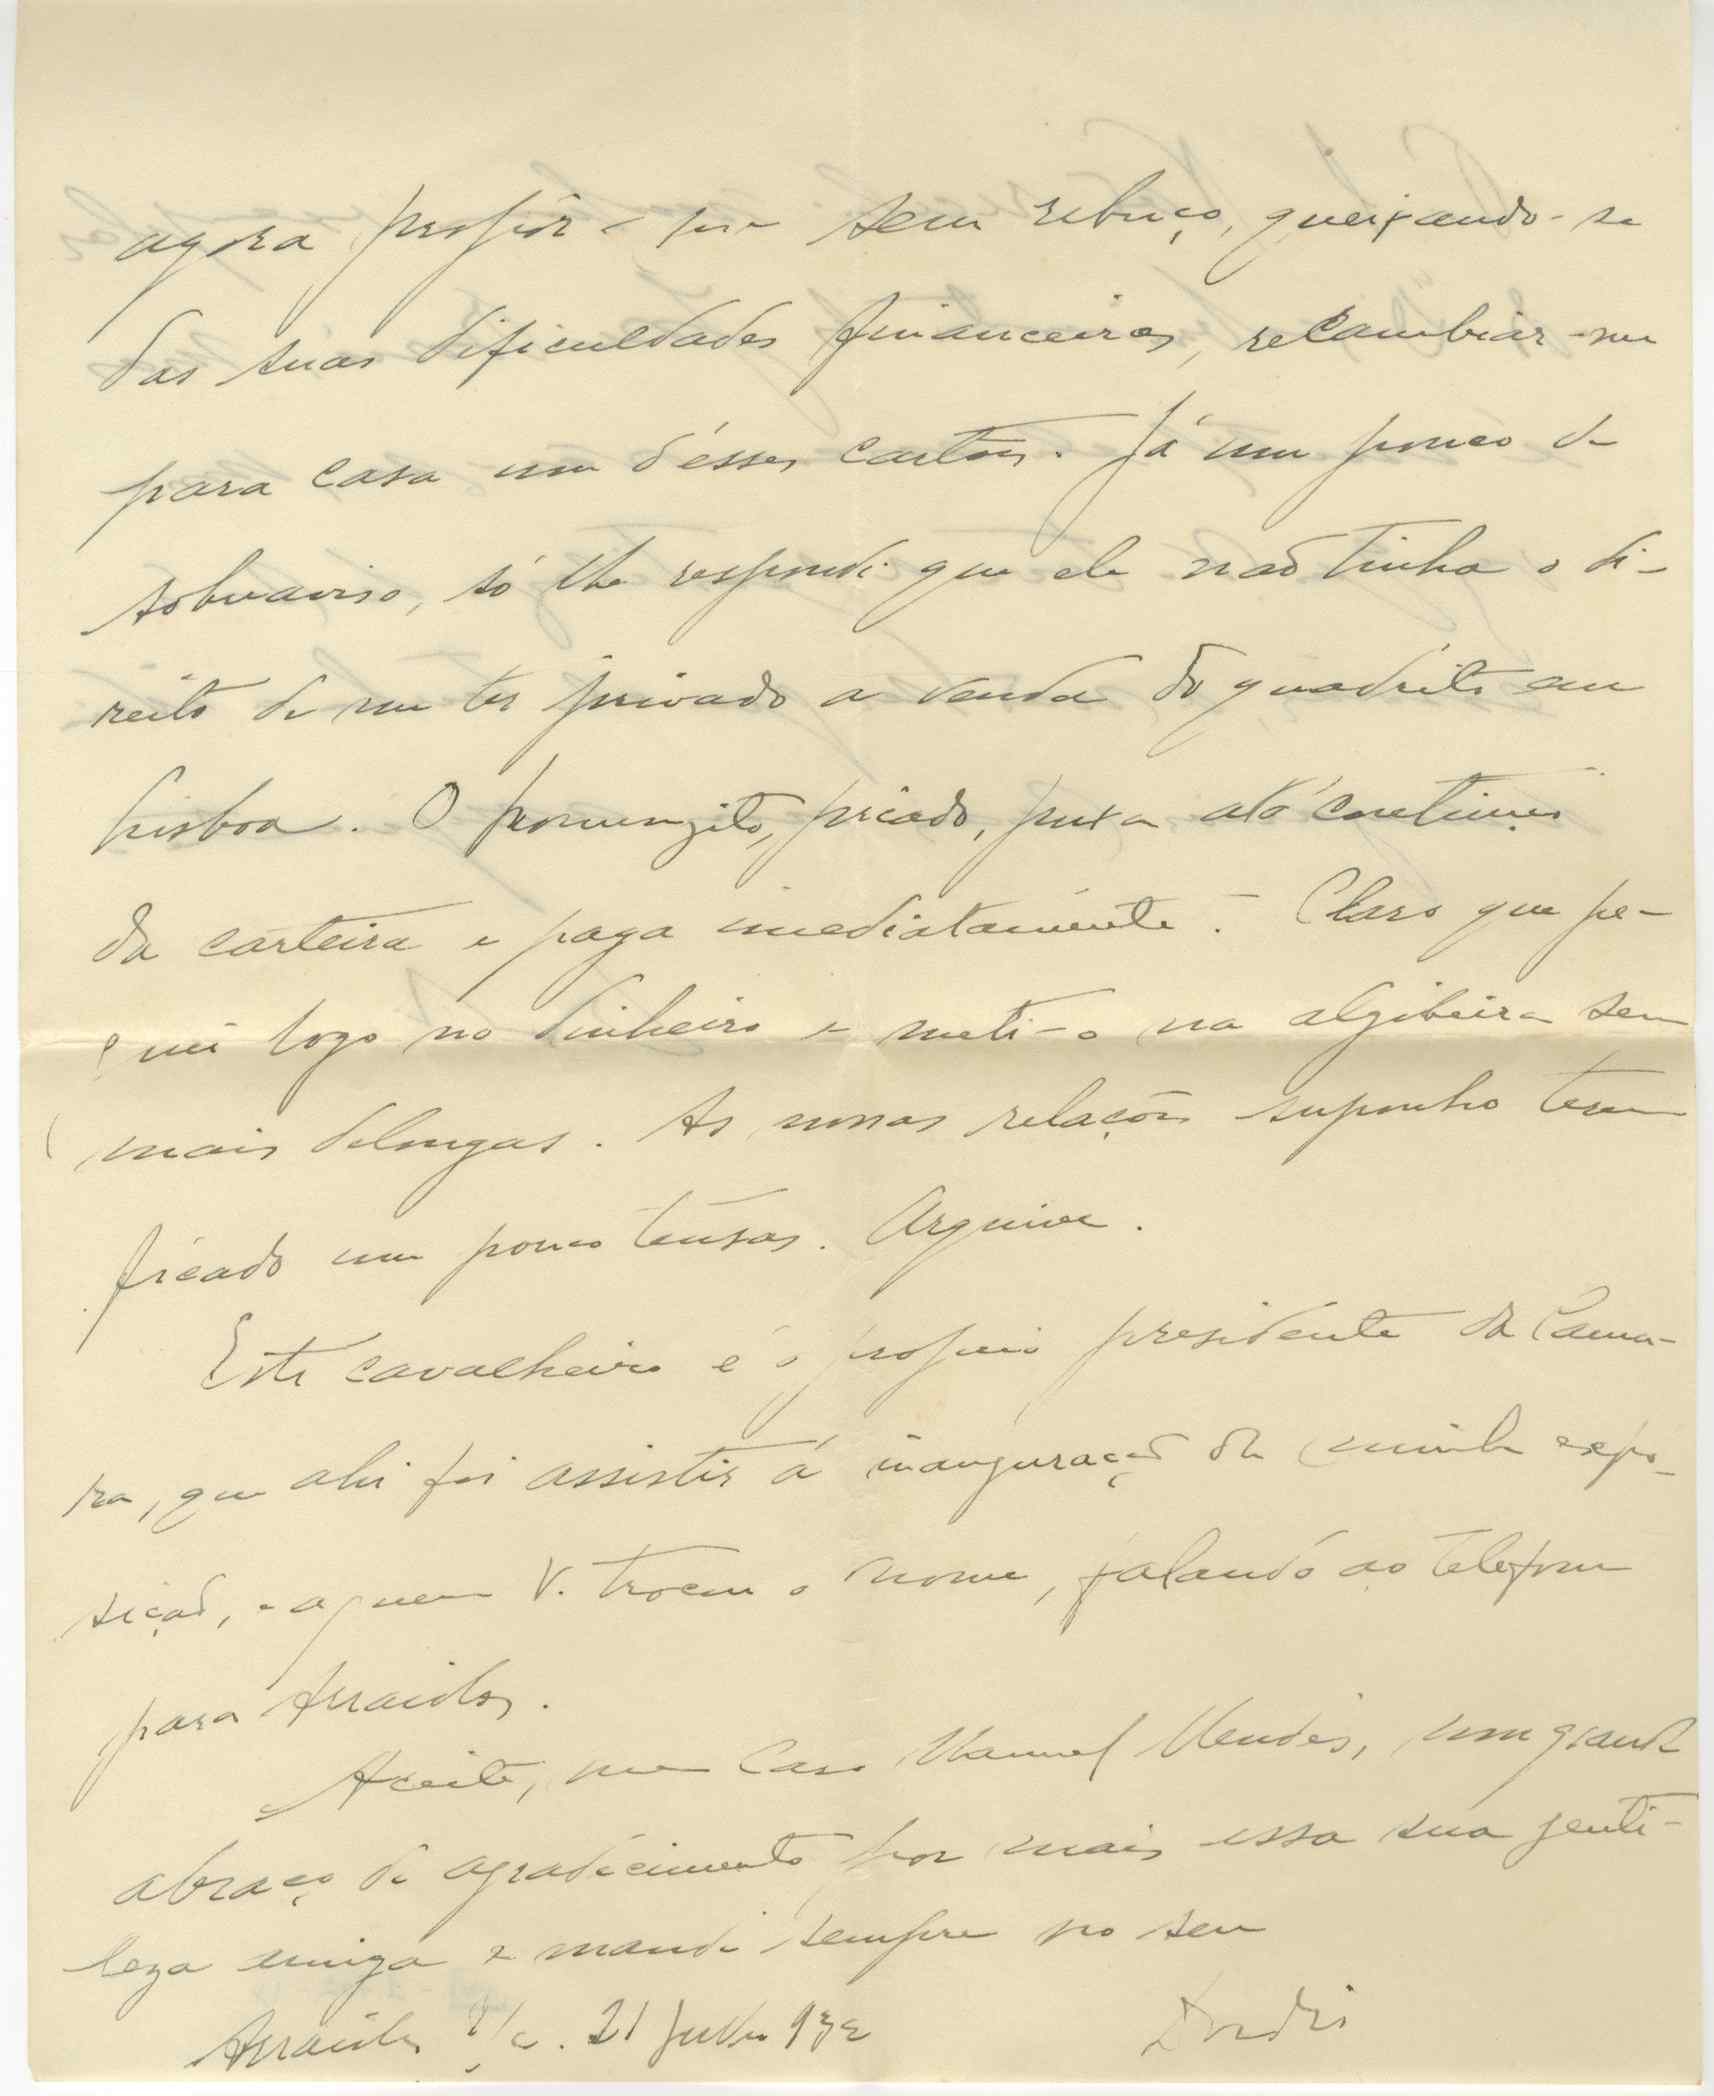 agora propôr-me sem rebuço, queixando-se
das suas dificuldades financeiras, recambiar-me
para casa um d'esses cartões. Já um pouco de
sobreaviso, só lhe respondi que ele não tinha o di-
reito de me ter privado a venda do quadrito em
Lisboa. O homenzito, picado, puxa
da carteira e paga imediatamente. Claro que pe-
guei logo no dinheiro e meti-o na algibeira sem
mais delongas. As nossas relações suponho terem
ficado um pouco tensas. Arquive.
Este cavalheiro é o proprio presidente da Cama-
ra, que ahi foi assistir á inauguração da minha expo-
sição, e a quem V. trocou o nome, falando ao telefone
para Arraiolos.
Aceite, meu Caro Manuel Mendes, um grande
abraço de agradecimento por mais essa sua genti-
leza amiga e mande sempre no seu
Arraiolos 21 Julho 932
Dordio